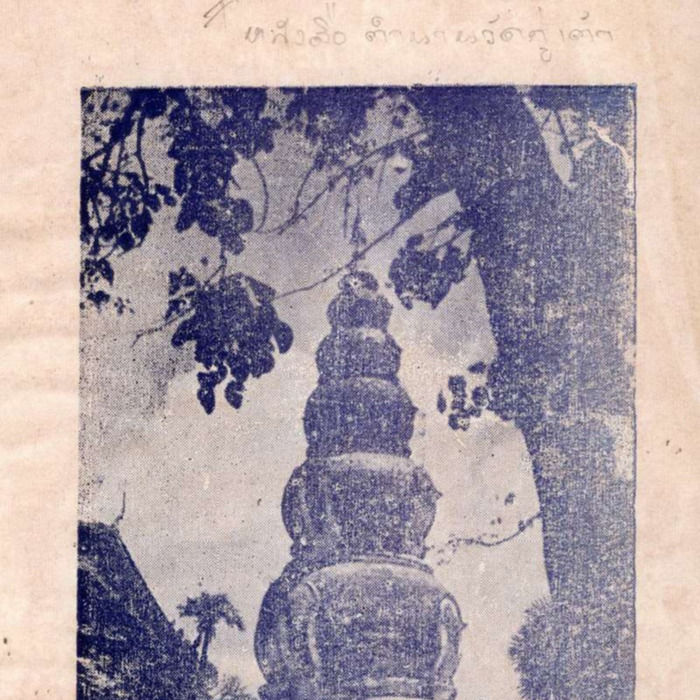 หนังสือ ตำนานวัดกู่เต้า